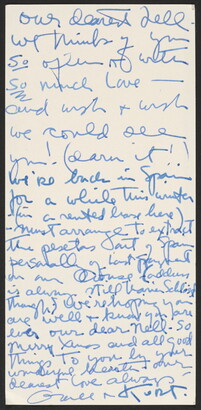 our dearest Nell
we think of you
so often & with
so much love —
and wish & wish
we could see
you! (darn it!!)
We're back in Spain
for a while this winter
in a rented house here
must arrange to extract
the pesetas out of Spain
personally or lost
is always still
though) We're hoping you
are well & know you are
ever our dear Nell. So
merry Xmas and all good
things to you by your
wonderful
dearest love always
& Kurt.